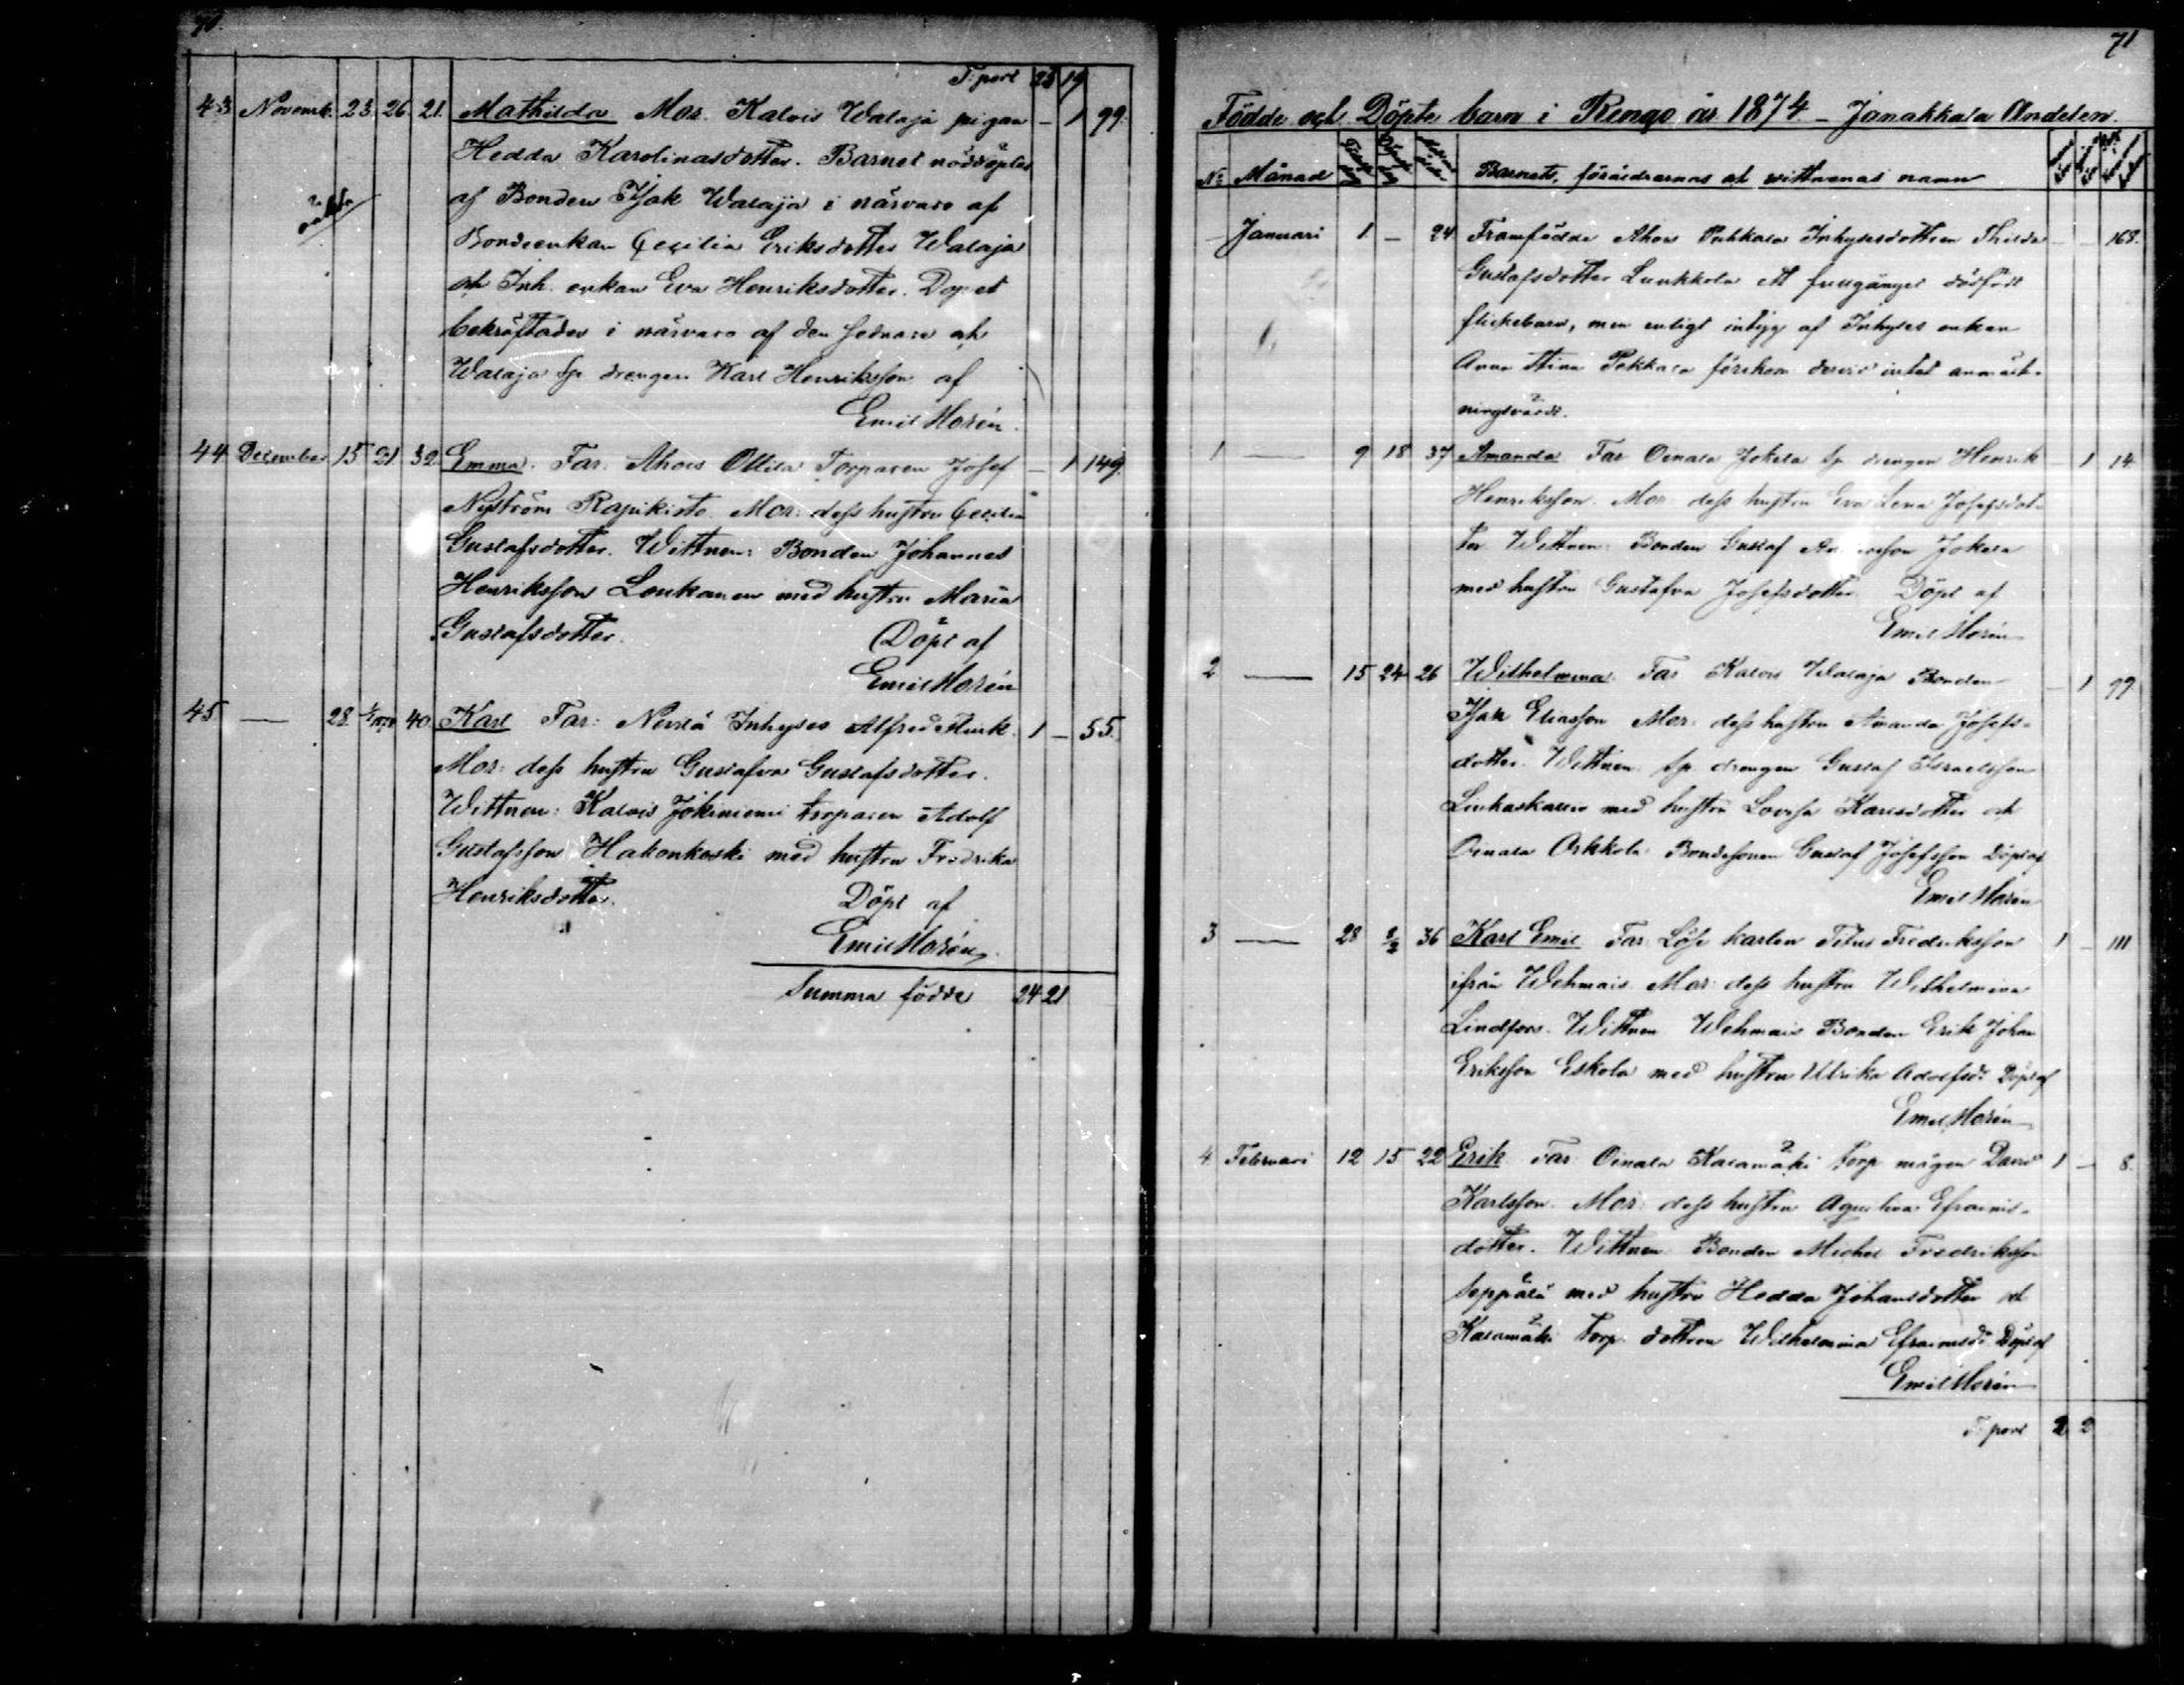 70.
T:port 23 19
43 Novemb. 23. 26. 21. Mathilda Mor. Kalois Walaja pigan — 1 99.
Hedda Karolinasdotter. Barnet nöddöptes
oäkta
af Bonden Isak Walaja i närvaro af
Bondeenkan Cecilia Eriksdotter Walaja
och Inh. enkan Eva Henriksdotter. Dopet
bekräftades i närvaro af den sednare och
Walaja Sp. drengen Karl Henriksson af
Emil Horén.
44 December 15 21 32 Emma. Far: Ahois Ollila Torparen Josef — 1 149.
Nyström Rapikisto. Mor: dess hustru Cecilia
Gustafsdotter. Wittnen: Bonden Johannes
Henriksson Loukanen med hustru Maria
Gustafsdotter. Döpt af
Emil Horén
45 — 28. 40. Karl Far: Nevilä Inhyses Alfred Flink. 1 — 55.
Mor: dess hustru Gustafva Gustafsdotter.
Wittnen: Kalois Jokiniemi torparen Adolf
Gustafsson Hakonkoski med hustru Fredrika
Henriksdotter. Döpt af
Emil Horén.
Summa födde 24 21
71
Födde och Döpte barn i Rengo år 1874 — Janakkala Andelen.
No Månad Barnets, föräldrarnas och wittnenas namn
— Januari 1 — 24 Framfödde Ahois Puhkala Inhysesdottren Thilda — — 168.
Gustafsdotter Lunkkola ett fullgånget dödfödt
flickebarn, men enligt intyg af Inhyses enkan
Anna Stina Pekkala förekom dervid intet anmärk-
ningsvärdt.
1 — 9 18 37 Amanda Far Oinala Jokela Sp. drengen Henrik — 1 14
Henriksson. Mor dess hustru Eva Lena Josefsdot-
ter Wittnen: Bonden Gustaf Jokela
med hustru Gustafva Josefsdotter Döpt af
Emil Horén
2 — 15 24 26 Wilhelmina. Far Kalois Walaja Bonden — 1 99
Isak Eliasson Mor: dess hustru Amanda Josefs-
dotter. Wittnen: Sp. drengen Gustaf Israelsson
med hustru Lovisa Karlsdotter och
Oinala Arkkola Bondesonen Gustaf Josefsson Döpt af
Emil Horén
3 — 28 8/2 36 Karl Emil Far: Löse karlen Titus Fredriksson 1 — 111
ifrån Wehmais Mor: dess hustru Wilhelmina
Lindfors. Wittnen Wehmais Bonden Erik Johan
Eriksson Eskola med hustru Ulrika Adolfsdr Döpt af
Emil Horén
4 Februari 12 15 22 Erik Far: Oinala Kalamäki Torp mågen David 1 — 8.
Karlsson. Mor: dess hustru Agustina Efraims-
dotter. Wittnen: Bonden Michel Fredriksson
Seppälä med hustru Hedda Johansdotter och
Kalamäki Torp. dottren Wilhelmina Efraimsdr Döpt af
Emil Horén
T:port 2 2